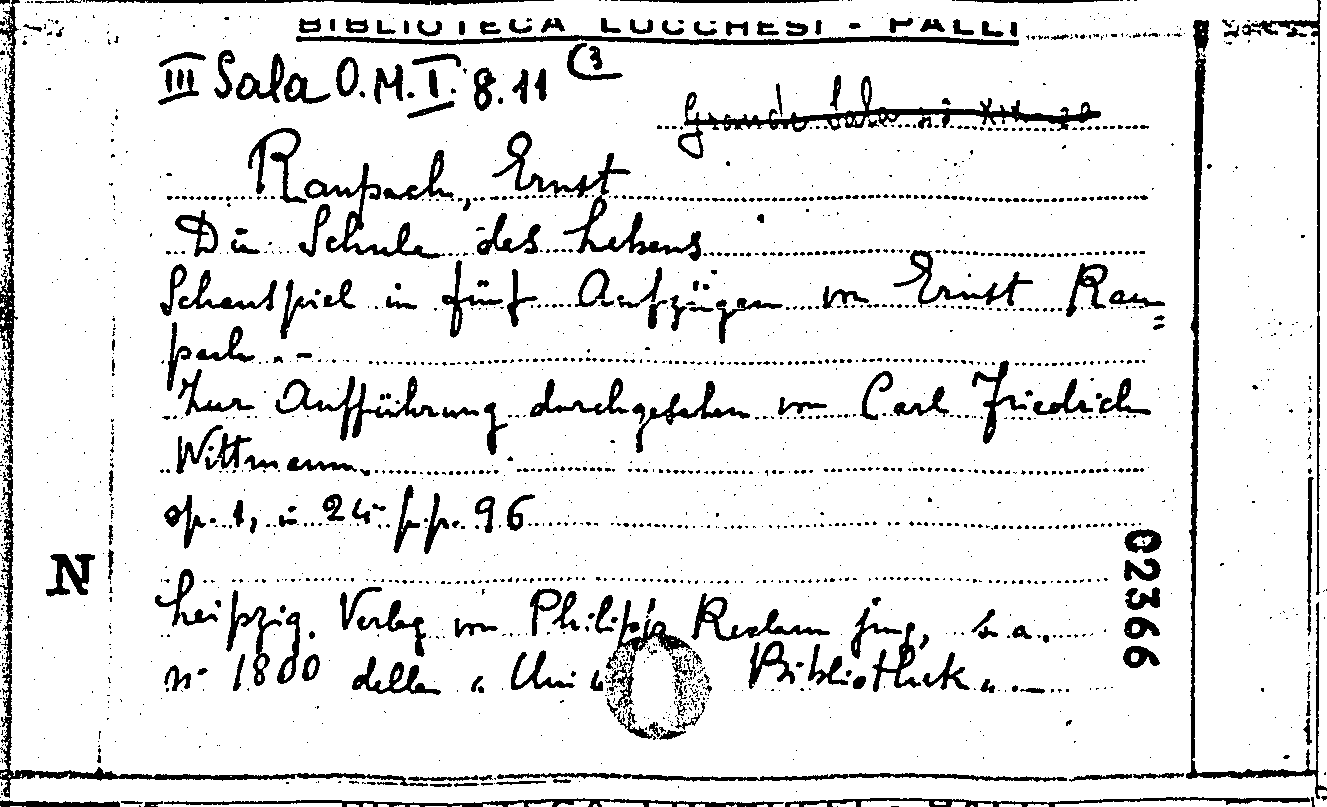 BIBLIOTECA LUCCHESI - PALLI
III Sala O.M.I. 8.11 (3
Grande Sala
Raupach, Ernst
Die Schule des Lebens
Schauspiel in fünf Aufzügen von Ernst Rau=
pach.-
Zur Aufführung durchgesehen von Carl Friedrich
Wittmann.
op. 1, in 24° pp. 96
N
02366
Leipzig, Verlag von Philipp Reclam jung, s.a.
n° 1800 della "Uni Bibliothek".-